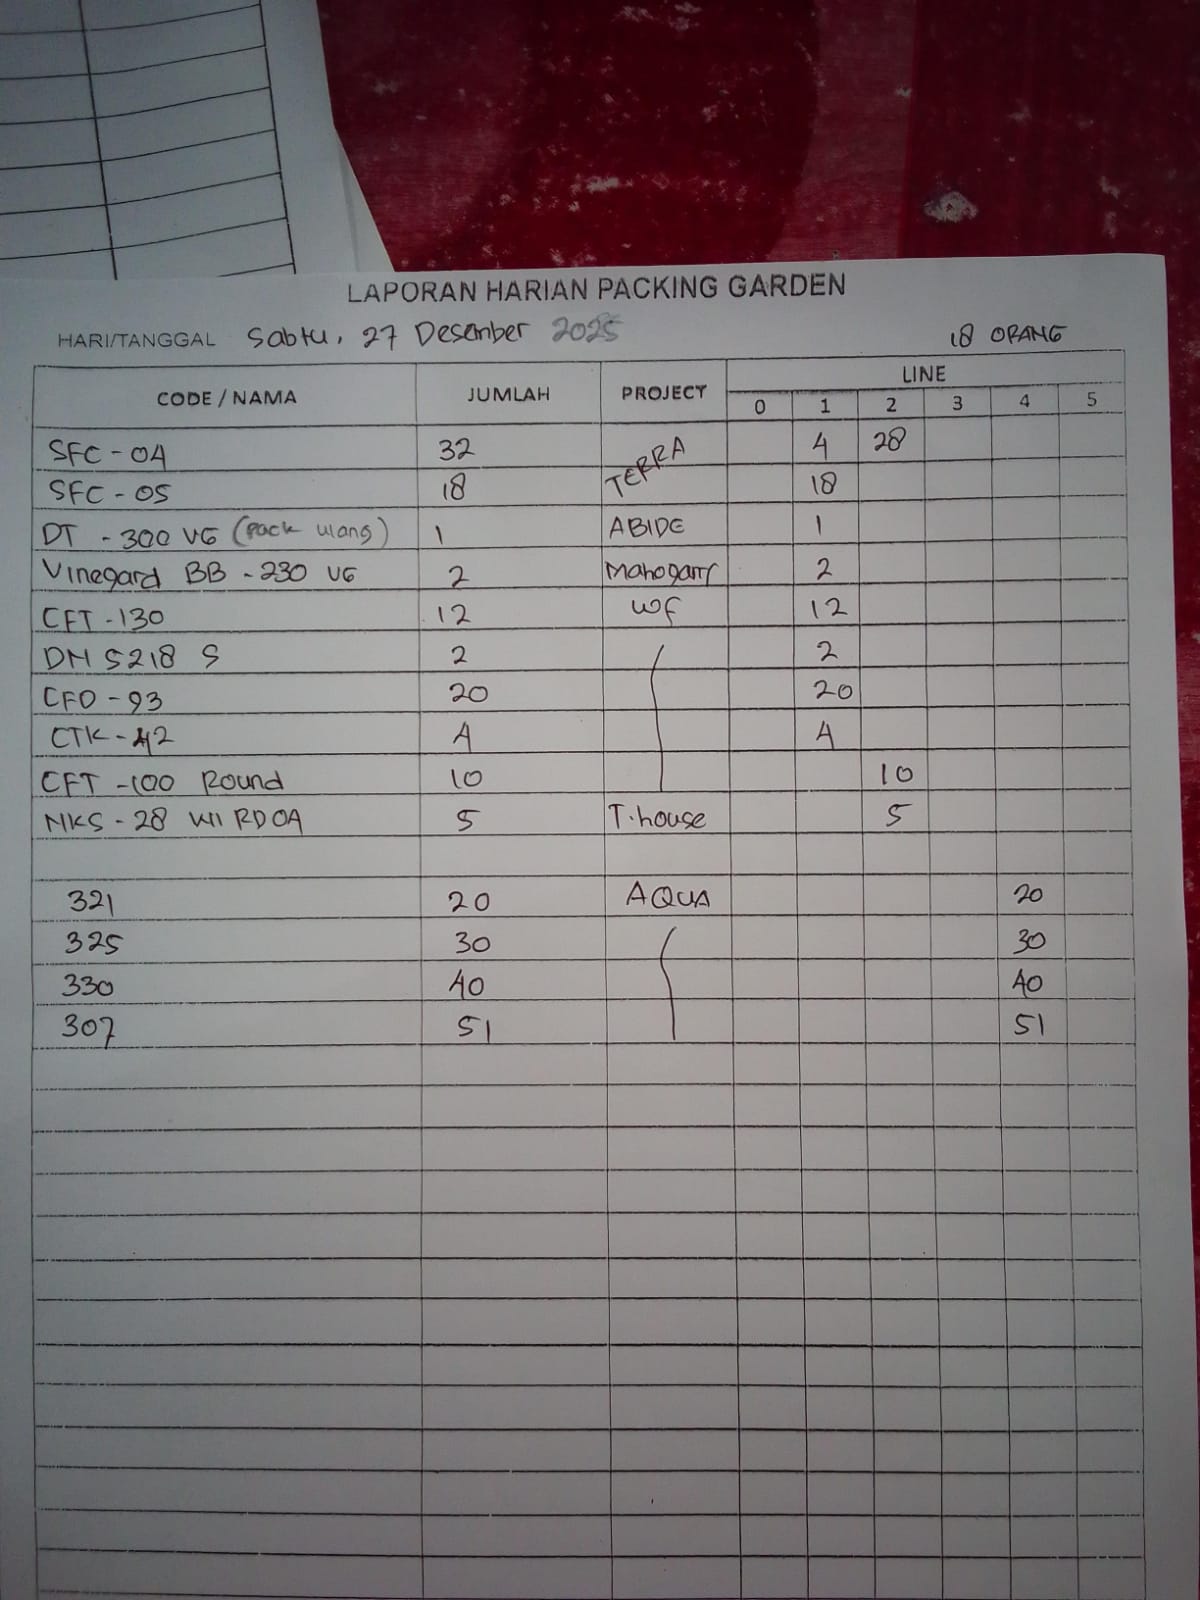 LAPORAN HARIAN PACKING GARDEN
HARI/TANGGAL Sabtu, 27 Desember 2025 18 ORANG
CODE / NAMA JUMLAH PROJECT LINE
0 1 2 3 4 5
SFC - 04 32 TERRA 4 28
SFC - 05 18 18
DT - 300 VG (pack ulang) 1 ABIDE 1
Vinegard BB - 230 VG 2 Mahogany 2
CFT - 130 12 WF 12
DM 5218 S 2 2
CFO - 93 20 20
CTK - 42 4 4
CFT - 100 Round 10 10
NKS - 28 RDOA 5 T.house 5
321 20 AQUA 20
325 30 30
330 40 40
307 51 51